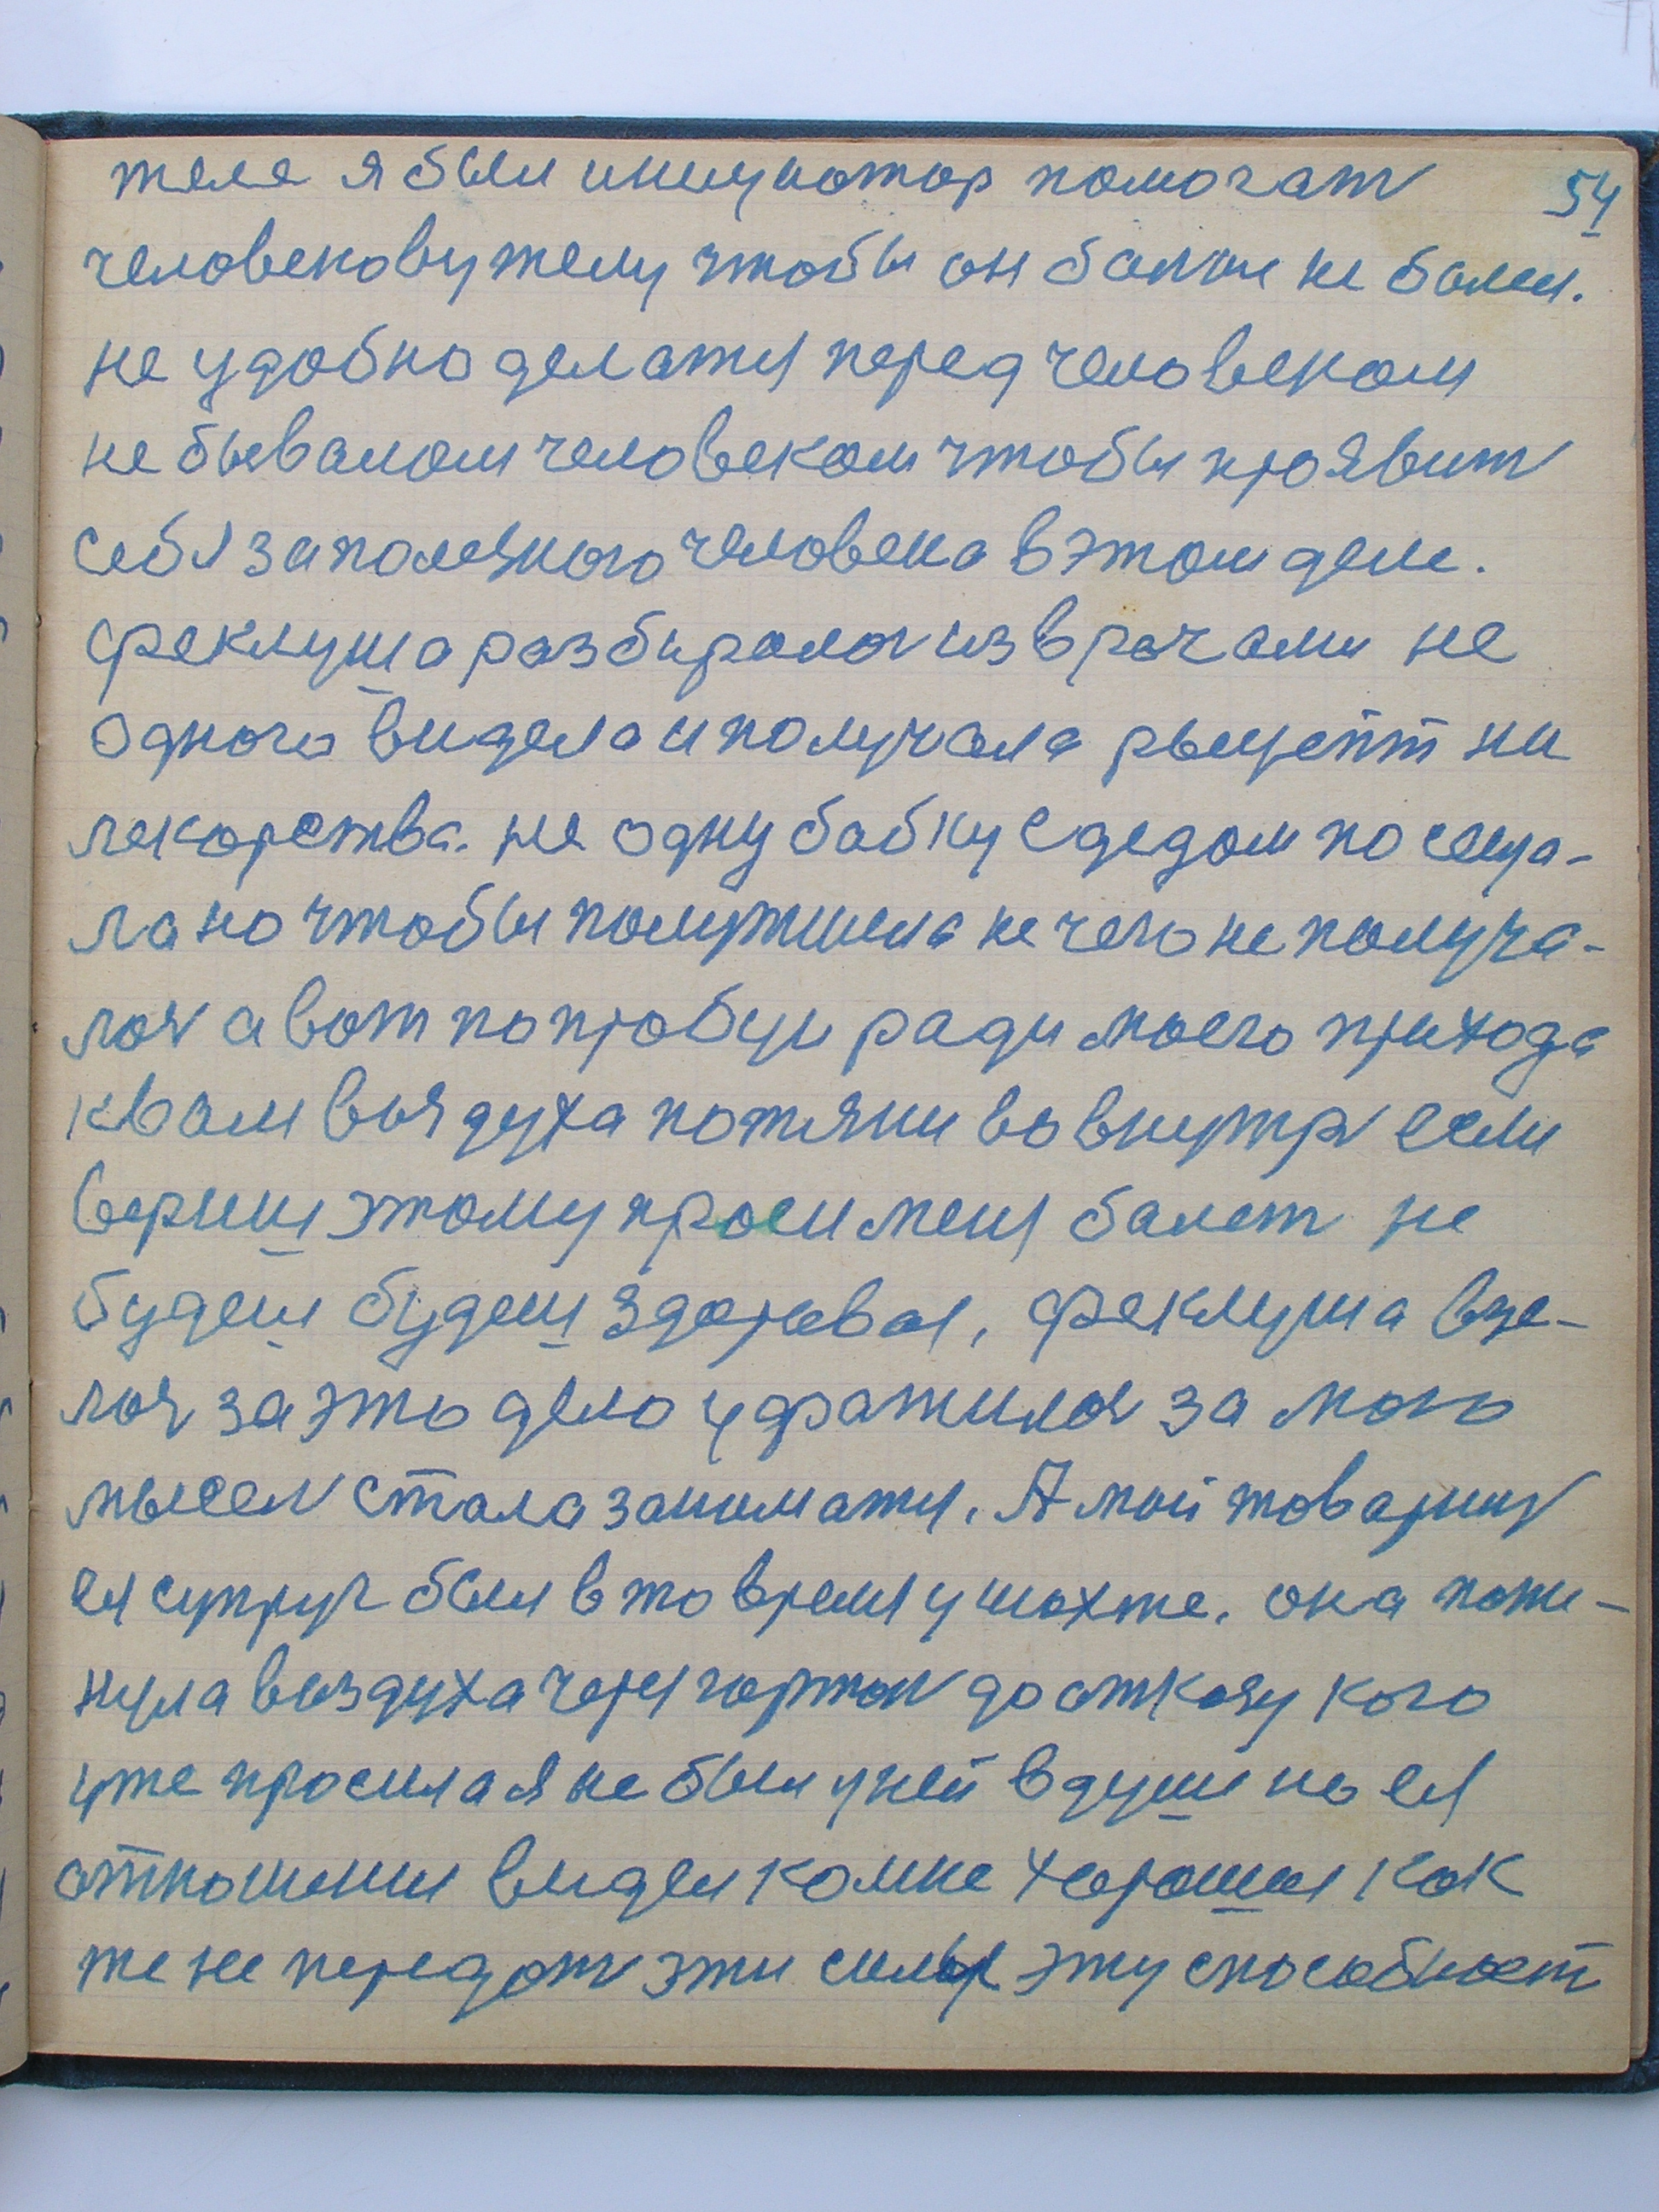 54
теле я был иницыатор помогат
человекову телу чтобы он болш не болел.
не удобно делатя перед человеком
не бывалом человеком чтобы проявит
себя за полезного человека в этом деле.
феклуша разбиралас из врачами не
одного видела и получала рыцепт на
лекарства. не одну бабку с дедом посеща-
ла но чтобы получшела не чего не получа-
лос а вот попробуи ради моего прихода
квам воздуха потяни вовнутр если
вериш этому проси меня болет не
будеш будеш здоровая, феклуша взе-
лас за это дело ухватилас за мою
мысел стала заниматя. А мой товарищ
ея супруг был в то время у шахте. она потя-
нула воздуха через гортан до отказу кого
уже просила я не был у ней в душе но ея
отношения видел комне хорошия как
же не передат эти силы эту способност